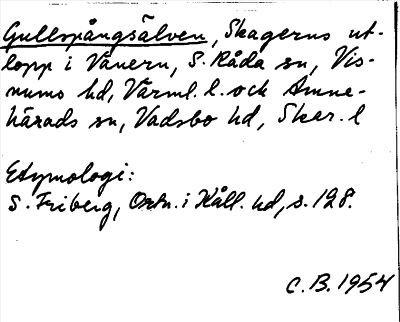 Gullspångsälven, Skagerns ut-
lopp i Vänern, S. Råda sn, Vis-
nums hd, Värml. l. och Amne-
härads sn, Vadsbo hd, Skar. l
Etymologi:
S. Friberg, Ortn. i Kåll. hd, s. 128.
C.B. 1954